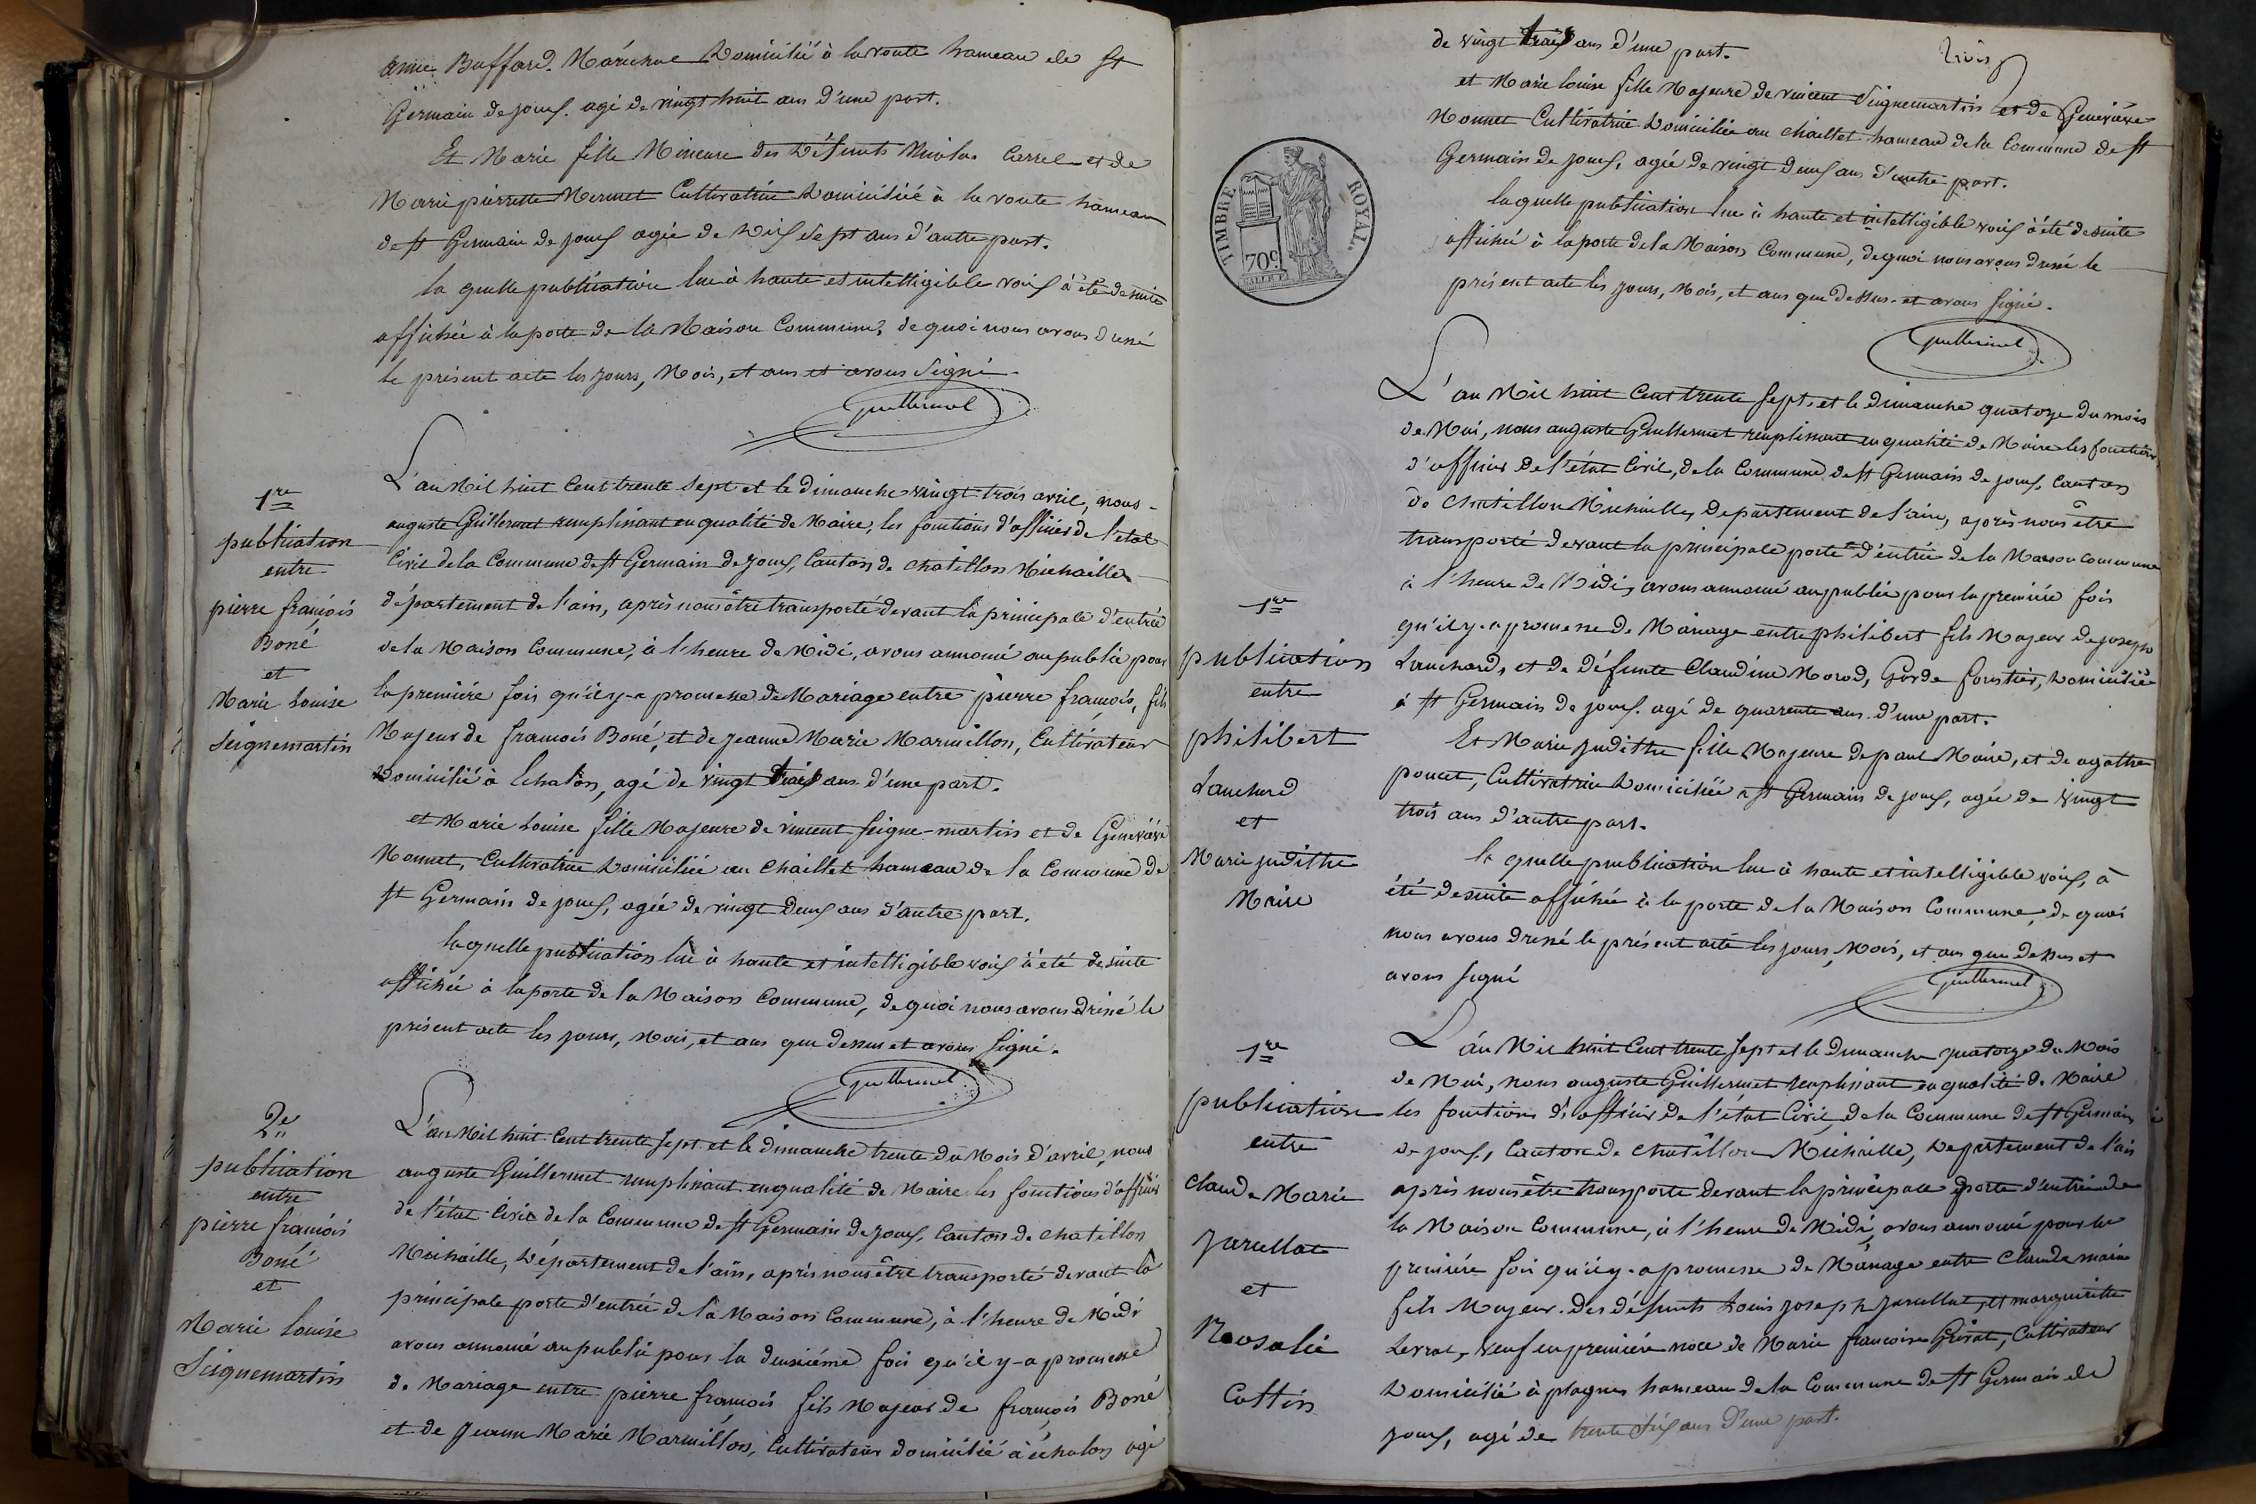 anne Buffard. Maréchal Domicilié à la voute hameau de St
Germain de joux. agé de vingt huit ans d'une part.
Et Marie fille Mineure des Défunts Nicolas Carrel et de
Marie pierrette Mermet Cultivatrice Domiciliée à la voute hameau
de St Germain de joux agée de Dix sept ans d'autre part.
la quelle publication lue à haute et intelligible voix à été de suite
affichée à la porte de la Maison Commune, de quoi nous avons dressé
le présent acte les jours, Mois, et ans et avons Signé.
Guillermet
1re
publication
entre
pierre françois
Boné
et
Marie Louise
Seignemartin
L'an Mil huit Cent trente Sept et le dimanche vingt trois avril, nous
auguste Guillermet remplissant en qualité de Maire, les fonctions d'officier de l'état
Civil de la Commune de St Germain de Joux, Canton de Chatillon Michaille
département de l'ain, après nous être transporté devant la principale d'entrée
de la Maison Commune, à l'heure de Midi, avons annoncé au public pour
la première fois qu'il y-a promesse de Mariage entre pierre françois, fils
Majeur de françois Boné, et de Jeanne Marie Marmillon, Cultivateur
Domicilié à Echalon, agé de vingt trois ans d'une part.
et Marie Louise fille Majeure de vincent Seigne-martin et de Geneviève
Monnet, Cultivatrice Domiciliée au Chaillet hameau de la Commune de
St Germain de joux, agée de vingt deux ans d'autre part.
la quelle publication lue à haute et intelligible voix à été de suite
affichée à la porte de la Maison Commune, de quoi nous avons dressé le
présent acte les jours, Mois, et ans que dessus et avons Signé.
Guillermet
2e
publication
entre
pierre françois
Boné
et
Marie Louise
Seignemartin
L'an Mil huit Cent trente Sept et le dimanche trente du Mois d'avril, nous
auguste Guillermet remplissant en qualité de Maire les fonctions d'officier
de l'état Civil de la Commune de St Germain de Joux, Canton de Chatillon
Michaille, Département de l'ain, après nous être transporté devant la
principale porte d'entrée de la Maison Commune, à l'heure de Midi
avons annoncé au public pour la deuxième fois qu'il y-a promesse
de Mariage entre pierre françois fils Majeur de françois Boné
et de Jeanne Marie Marmillon, Cultivateur domicilié à échalon agé
de vingt trois ans d'une part.
trois
et Marie Louise fille Majeure de vincent Seignemartin et de Geneviève
Monnet Cultivatrice Domiciliée au Chaillet hameau de la Commune de St
Germain de joux, agée de vingt deux ans d'autre part.
la quelle publication lue à haute et intelligible voix à été de suite
affichée à la porte de la Maison Commune, de quoi nous avons dressé le
présent acte les jours, Mois, et ans que dessus et avons Signé.
Guillermet
TIMBRE ROYAL
70c
L'an Mil huit Cent trente Sept, et le dimanche quatorze du mois
de Mai, nous auguste Guillermet remplissant en qualité de Maire les fonctions
d'officier de l'état Civil, de la Commune de St Germain de joux, Canton
de Chatillon Michaille, Département de l'ain, après nous être
transporté devant la principale porte d'entrée de la Maison commune
à l'heure de Midi, avons annoncé au public pour la première fois
qu'il y-a promesse de Mariage entre philibert fils Majeur de joseph
Lanchard, et de défunte Claudine Morod, Garde forestier, Domicilié
à St Germain de joux. agé de quarente ans d'une part.
Et Marie Judithe fille Majeure de paul Maire, et de agathe
poncet, Cultivatrice Domiciliée à St Germain de joux, agée de vingt
trois ans d'autre part.
la quelle publication lue à haute et intelligible voix, à
été de suite affichée à la porte de la Maison Commune, de quoi
nous avons dressé le présent acte les jours, Mois, et ans que dessus et
avons Signé
Guillermet
1re
publication
entre
philibert
Lanchard
et
Marie Judithe
Maire
1re
publication
entre
Claude Marie
Jarullat
et
Rosalie
Cottin
L'an Mil huit Cent trente Sept et le dimanche quatorze du Mois
de Mai, nous auguste Guillermet remplissant en qualité de Maire
les fonctions d'officier de l'état Civil, de la Commune de St Germain
de joux, Canton de Chatillon Michaille, Département de l'ain
après nous être transporté devant la principale porte d'entrée de
la Maison Commune, à l'heure de Midi, avons annoncé pour la
première fois qu'il y-a promesse de Mariage entre Claude marie
fils Majeur des défunts Louis joseph Jarullat, et marguerite
Levrat, Veuf en première noce de Marie francoise Grirat, Cultivateur
Domicilié à plagnes hameau de la Commune de St Germain de
joux, agé de trente six ans d'une part.